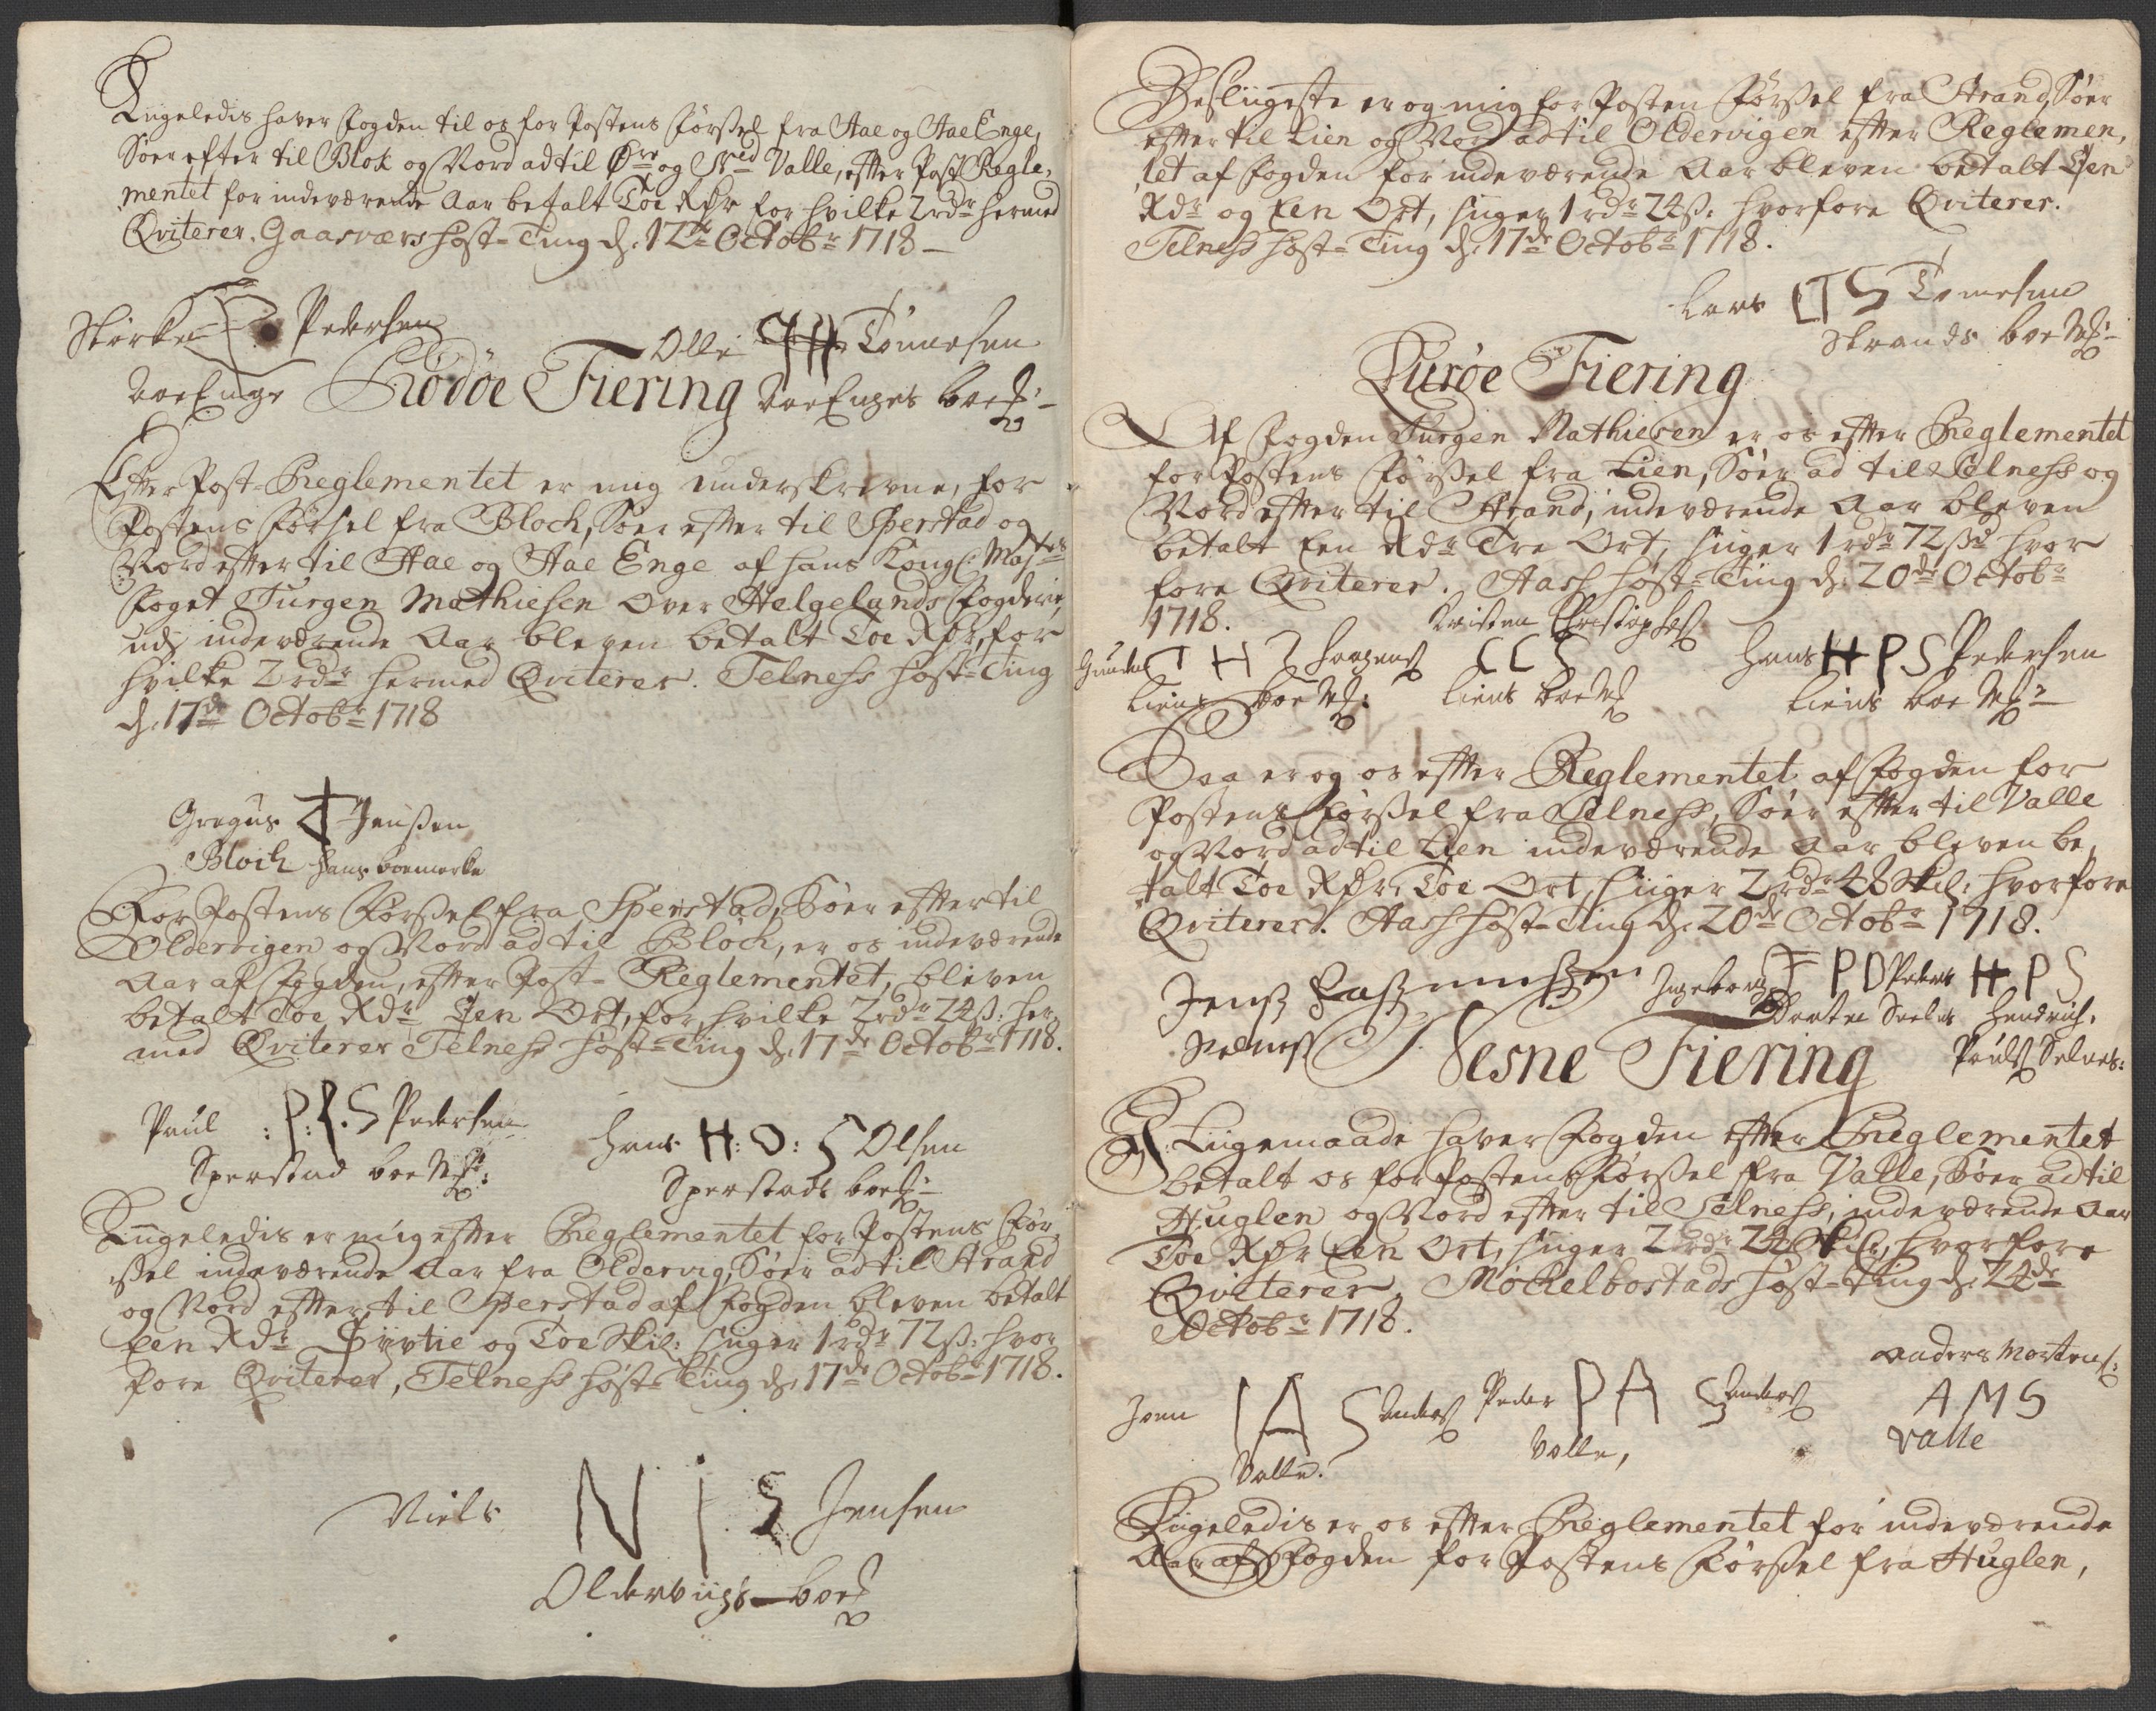 Liigeledis haver Fogden til os for Postens Førssel fra Aae og Aae Enge,
Søer efter til Blok og Nord ad til Øfre og Ned Valle, efter Post Regle-
mentet for indeværende Aar betalt Toe Rdr for hvilke 2 rdr hermed
Qviterer. Gaasværs Høst-Ting d. 12te Octobr 1718 –
Størker Pedersen
Olle Tønnesen
Aae Enge
Rødøe Fiering
Aae Enges boe
Efter Post-Reglementet er mig underskrevne, for
Postens Førsel fra Bloch, Søer efter til Sperstad og
Nord efter til Aae og Aae Enge af Hans Kongl: Mays
Foget Jurgen Mathiesen over Helgelands Fogderie,
udj indeværende Aar bleven betalt Toe Rdr, for
hvilke 2 rdr hermed Qviterer. Telness Høst-Ting
d. 17de Octobr 1718
Gregus Jenssen
Bloch hans boemerke
For Postens Førssel fra Sperstad, Søer efter til
Oldervigen og Nord ad til Bloch, er os indeværende
Aar af Fogden, efter Post-Reglementet, bleven
betalt Toe Rdr Een Ort, for hvilke 2 rdr 24 ß. her-
med Qviterer Telness Høst-Ting d. 17de Octobr 1718.
Paul P. P. S Pedersen
Hans H: O: S Olsen
Sperstad boe
Sperstads boe
Liigeledis er mig efter Reglementet for Postens Før-
ssel indeværende Aar fra Oldervig, Søer ad til Strand
og Nord efter til Sperstad af Fogden bleven betalt
Een Rdr Syvtie og Toe Skil: siiger 1 rdr 72 ß: hvor
fore Qviterer, Telness Høst-Ting d. 17de Octobr 1718.
Niels N I S Jensen
Olderviigs boe
Desliigeste er og mig for Posten Førssel fra Strand, Søer
efter til Lien og Nord ad til Oldervigen efter Reglemen-
tet af Fogden for indeværende Aar bleven betalt Een
Rdr og Een Ort, siiger 1 rdr 24 ß: hvorfore Qviterer.
Telness Høst-Ting d. 17de Octobr 1718.
Lars L T S Tomesen
Strands boe
Lurøe Fiering
Af Fogden Jurgen Mathiesen er os efter Reglementet
for Postens Førssel fra Lien, Søer ad til Selness og
Nord efter til Strand, indeværende Aar bleven
betalt Een Rdr Tre Ort, siiger 1 rdr 72 ß hvor
fore Qviterer. Aash Høst-Ting d. 20de Octobr
1718.
Kristen Christophs
Gunder
C C S
Hans H P S Pedersen
Liens boe
Liens boe
Liens boe
Saa er og os efter Reglementet af Fogden for
Postens Førssel fra Selness, Søer efter til Valle
og Nord ad til Lien indeværende Aar bleven be-
talt Toe Rdr: Toe Ort, siiger 2 rdr 48 Skil: hvorfore
Qviterer. Aash Høst-Ting d. 20de Octobr 1718.
Jenss Rassmussen Ingeborg I P D Peders H P S
Selness
Daater Selnes Hendrich
Nesne Fiering
Pauls Selnes:
I Liigemaade haver Fogden efter Reglementet
betalt os for Postens Førssel fra Valle, Søer ad til
Huglen og Nord efter til Selness, indeværende Aar
Toe Rdr Een Ort, siiger 2 rdr 24 Skil, hvorfore
Qviterer. Mockelbostads Høst-Ting d. 24de
Octobr 1718.
Anders Mortens:
Joen I A S Anders Peder P A S Anders
A M S
Valle.
Valle,
Valle
Liigeledis er os efter Reglementet for indeværende
Aar af Fogden for Postens Førssel fra Huglen,